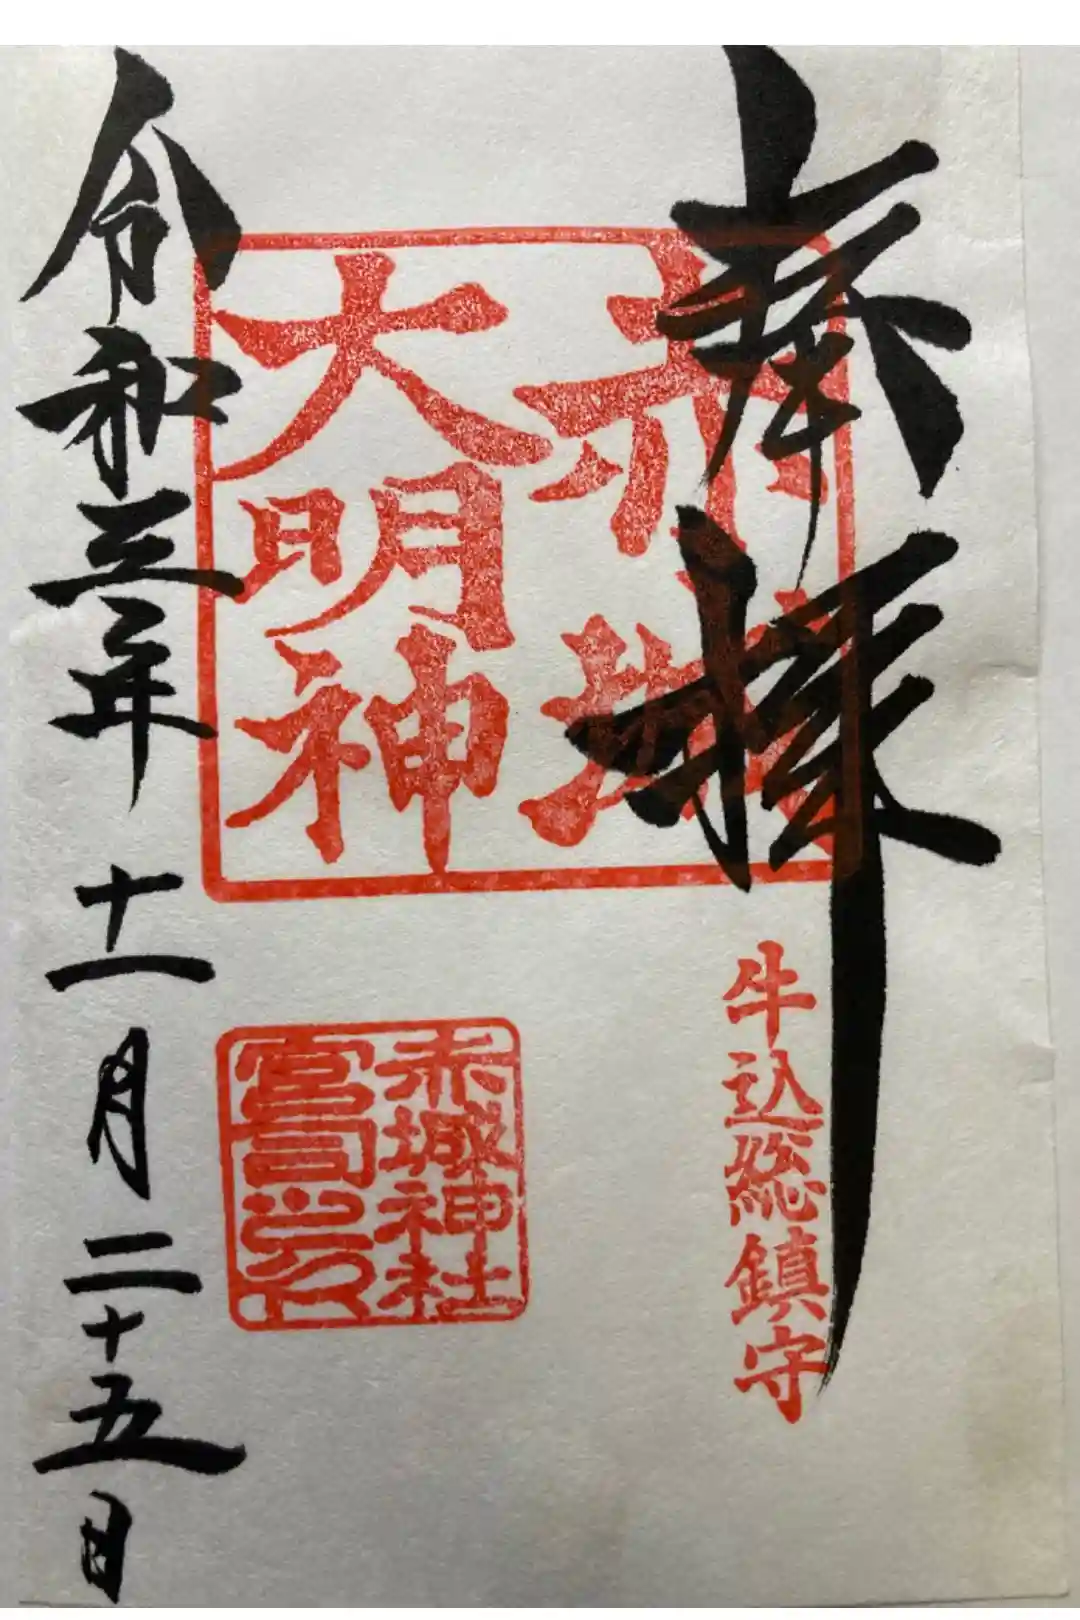 奉拝
牛込総鎮守
赤城
大明神
赤城神社
宮司之印
令和三年十一月二十五日